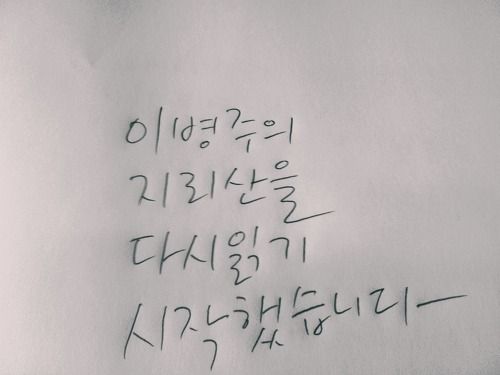 이병주의
지리산을
다시읽기
시작했습니다